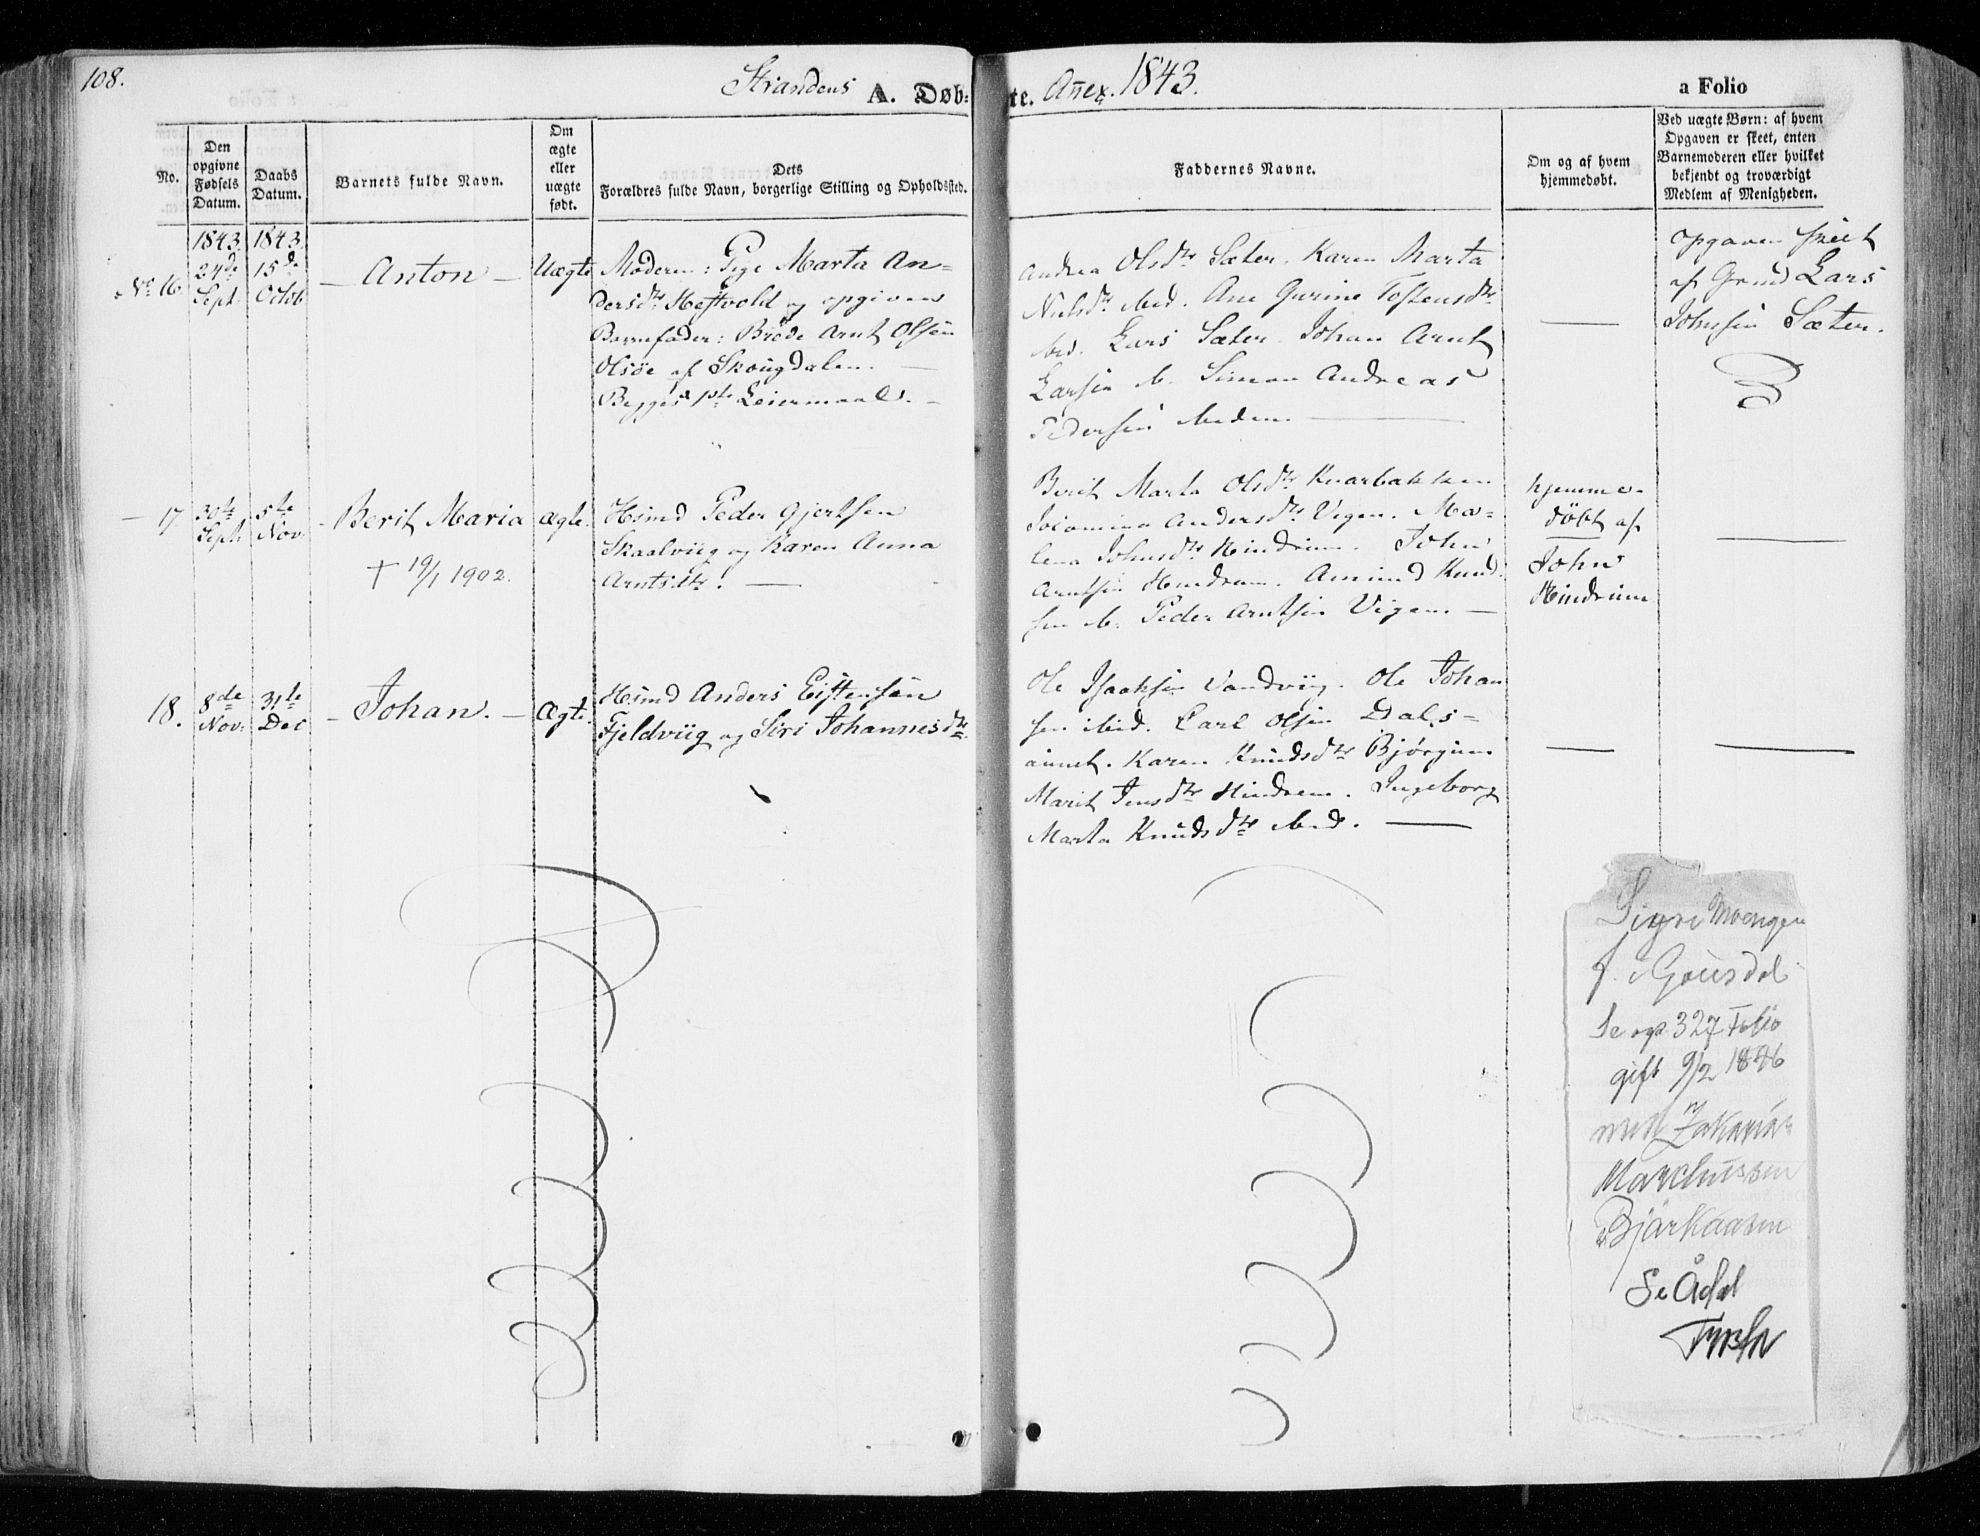 108.
Strandens A. Døb=
te. Añex. 1843.
a Folio
No.
Den opgivne Fødsels Datum.
Daabs Datum.
Barnets fulde Navn.
Om ægte eller uægte født.
Dets
Forældres fulde Navn, borgerlige Stilling og Opholdssted.
Faddernes Navne.
Om og af hvem hjemmedøbt.
Ved uægte Børn: af hvem
Opgaven er skeet, enten
Barnemoderen eller hvilket
bekjendt og troværdigt
Medlem af Menigheden.
No 16.
1843. 24de Sept.
1843. 15de Octob
Anton
Uægte
Moderen: Pige Marta An=
dersdtr Heftvold og opgiven
Barnfader: Brøde Arnt Olsen
Olsöe af Skougdalen.
Begges 1ste Leiermaal.
Andrea Olsdtr Sæter. Karen Marta
Nielsdtr ibid. Ane Gurine Tostensdtr
ibid. Lars Sæter. Johan Arnt
Larsen ib. Simon Andreas
Pedersen ibidem.
Opgaven skeet
af Grmd Lars
Johnsen Sæter.
17
30te Sept.
5te Nov.
Berit Maria
Ægte.
† 19/1 1902.
Hsmd Peder Gjertsen
Skaalviig og Karen Anna
Arntsdtr.
Berit Marta Olsdtr
Andersdtr Vigen. Ma=
lena Johnsdtr Hindrum. John
Arntsen Hindrum. Amund Knud=
sen ib. Peder Arntsen Vigen.
hjemme-
døbt af
John
Hindrum
18.
8de Nov.
31te Dec
Johan.
Ægte.
Hsmd Anders Eistensen
Fjeldviig og Siri Johannesdtr.
Ole Isaaksen Vandviig. Ole Johan
sen ibid. Carl Olsen Dals=
aunet. Karen Knudsdtr Bjørgum
Marit Jensdtr Hindrem. Ingeborg
Marta Knudsdtr ibid.
Sigri Moengen
f. i Gousdal
Se ogs. 327 Folio
gift 9/2 1846
med Zakarias
Marchussen
Bjørkaasen
Se Ådal